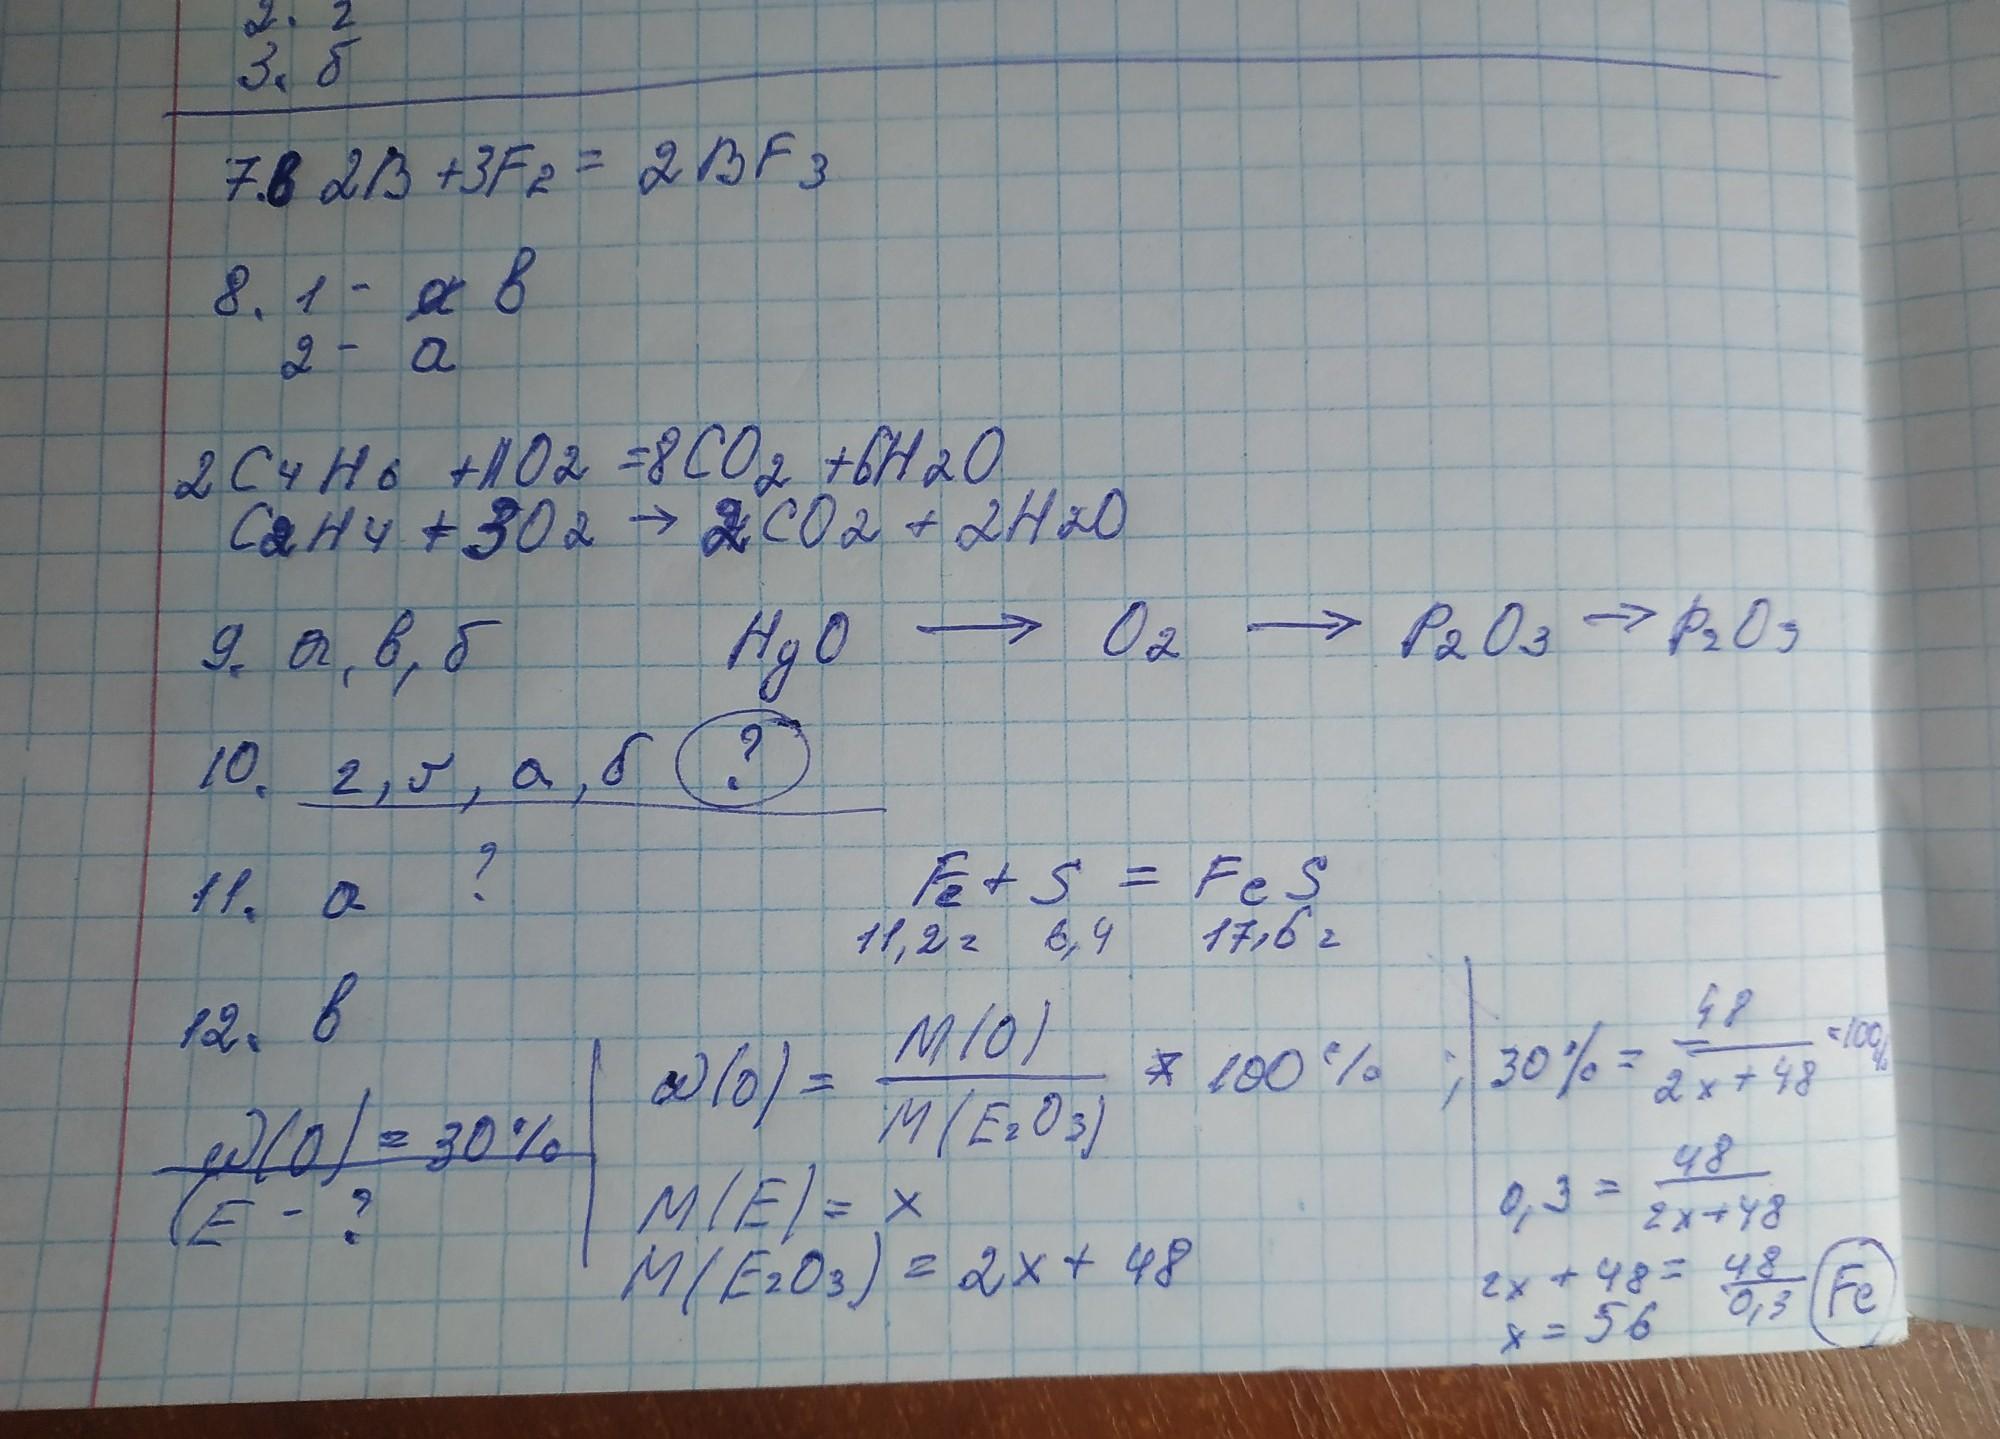 2. г
3. б
7.в 2B + 3F2 = 2BF3
8. 1 - в
2 - а
2C4H6 + 11O2 = 8CO2 + 6H2O
C2H4 + 3O2 → 2CO2 + 2H2O
9. а, в, б HgO → O2 → P2O3 → P2O3
10. г, а, б ?
11. а ? Fe + S = FeS
11,2г 6,4 17,6г
12. в
W(O) = 30%
E - ?
W(O) = M(O) / M(E2O3) * 100% ;
M(E) = x
M(E2O3) = 2x + 48
30% = 48 / 2x + 48 = 100%
0,3 = 48 / 2x + 48
2x + 48 = 48 / 0,3 Fe
x = 56